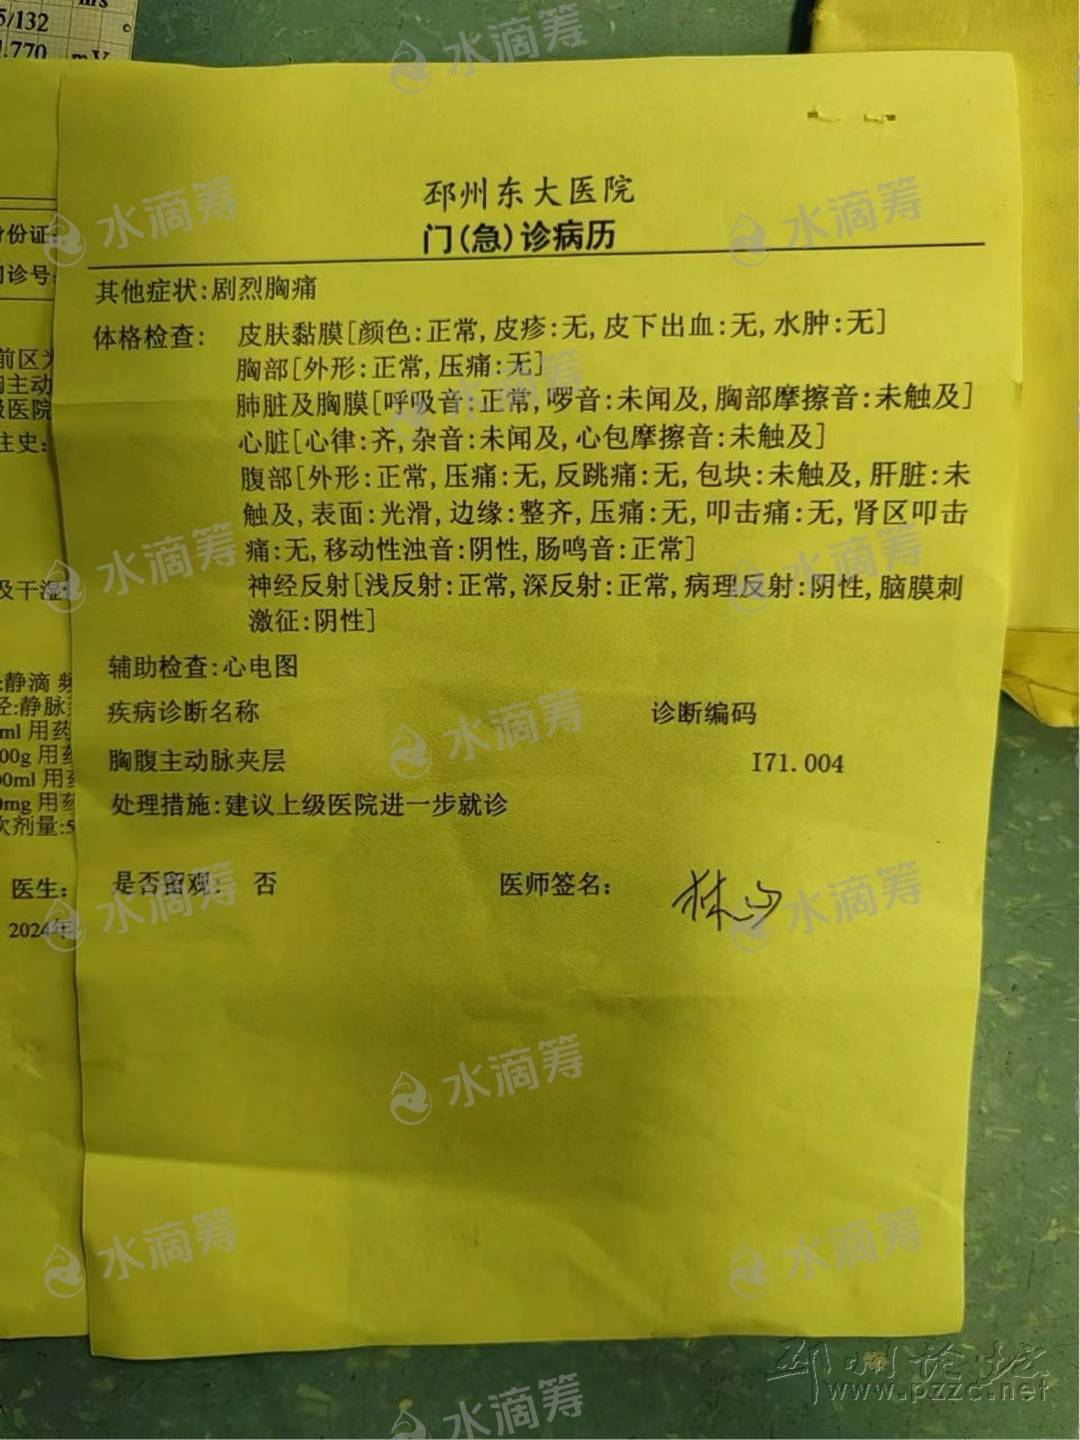 5/132
1.770
水滴筹
邳州东大医院
门(急)诊病历
身份证
诊号:
其他症状:剧烈胸痛
体格检查: 皮肤黏膜[颜色:正常,皮疹:无,皮下出血:无,水肿:无]
胸部[外形:正常,压痛:无]
肺脏及胸膜[呼吸音:正常,啰音:未闻及,胸部摩擦音:未触及]
心脏[心律:齐,杂音:未闻及,心包摩擦音:未触及]
腹部[外形:正常,压痛:无,反跳痛:无,包块:未触及,肝脏:未
触及,表面:光滑,边缘:整齐,压痛:无,叩击痛:无,肾区叩击
痛:无,移动性浊音:阴性,肠鸣音:正常]
神经反射[浅反射:正常,深反射:正常,病理反射:阴性,脑膜刺
激征:阴性]
辅助检查:心电图
疾病诊断名称 诊断编码
胸腹主动脉夹层 I71.004
处理措施:建议上级医院进一步就诊
是否留观: 否 医师签名:
前区
主动
级医院
往史:
及干湿
:静滴 频
径:静脉
ml 用药
00g 用药
00ml 用
0mg 用药
次剂量:5
医生:
2024年
水滴筹
水滴筹
水滴筹
水滴筹
水滴筹
水滴筹
水滴筹
水滴筹
水滴筹
水滴筹
水滴筹
水滴筹
水滴筹
邳州论坛
www.pzzc.net